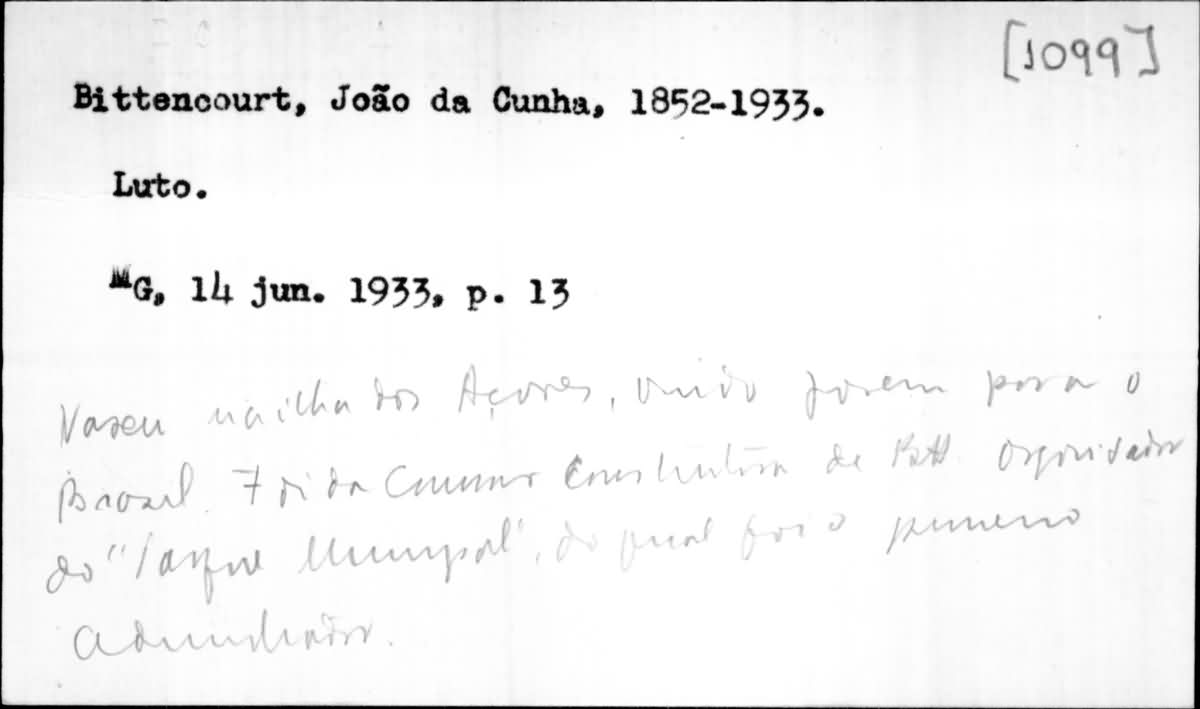 [1099]
Bittencourt, João da Cunha, 1852-1933.
Luto.
MG, 14 jun. 1933, p. 13
Nasceu na ilha dos Açores, vindo jovem para o
Brasil. Foi da Comissão Construtora de BH. Organisador
do "Parque Municipal", do qual foi o primeiro
Administrador.